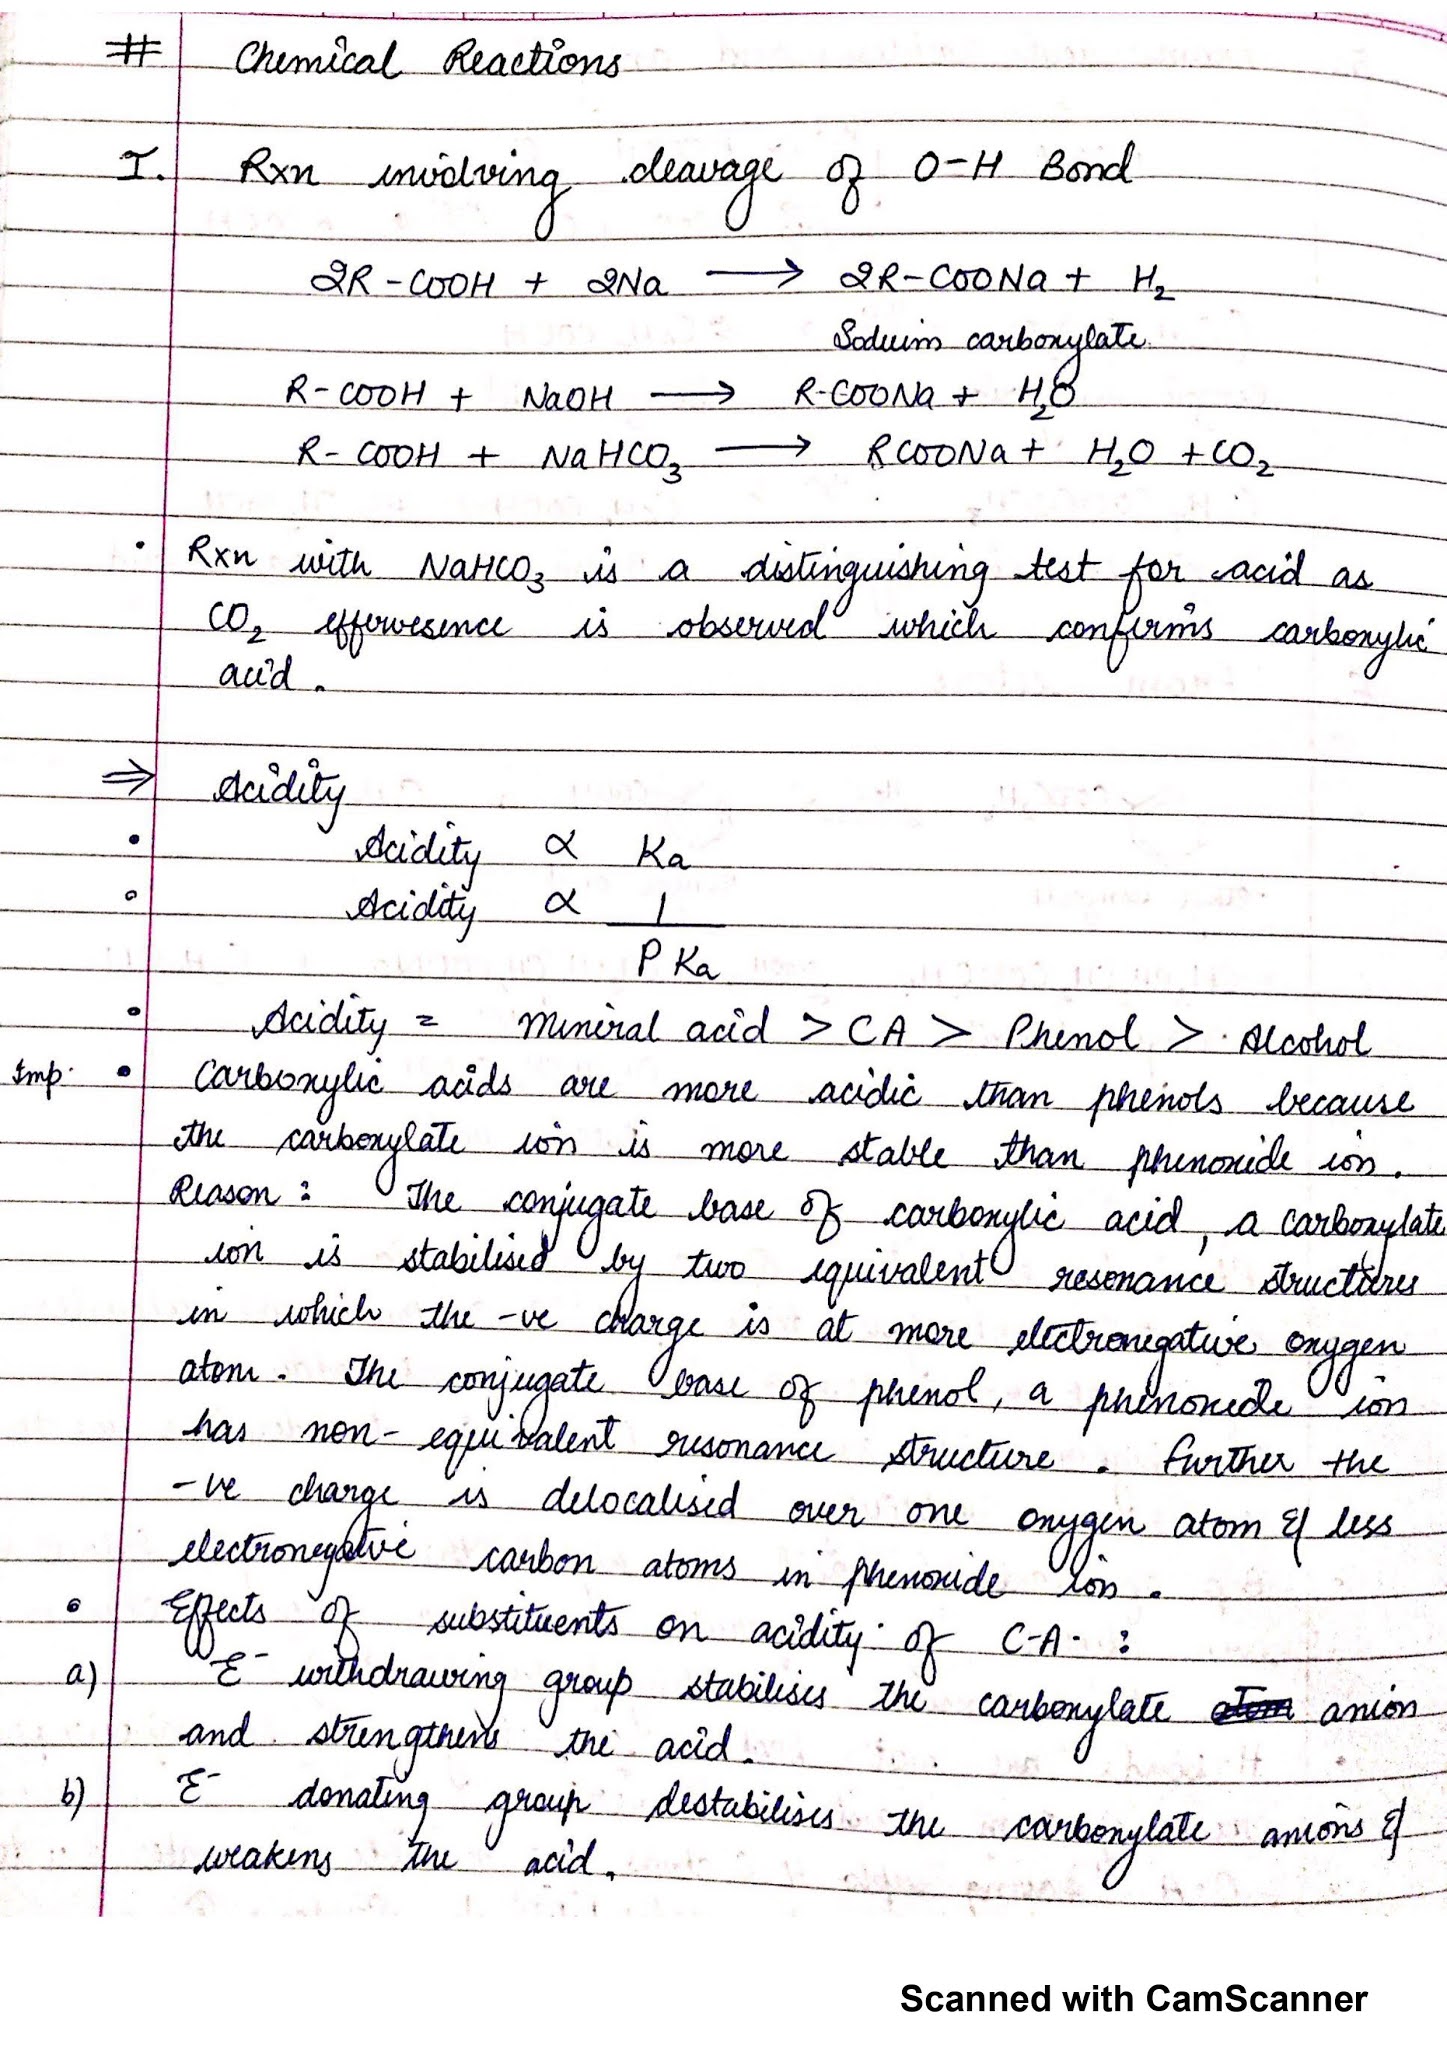 # Chemical Reactions
I. Rxn involving cleavage of O-H Bond
2R-COOH + 2Na ⟶ 2R-COONa + H₂
Soduim carboxylate
R-COOH + NaOH ⟶ R-COONa + H₂O
R-COOH + NaHCO₃ ⟶ RCOONa + H₂O + CO₂
• Rxn with NaHCO₃ is a distinguishing test for acid as
CO₂ effervesence is observed which confirms carboxylic
acid.
⇒ Acidity
• Acidity ∝ Ka
• Acidity ∝ 1
PKa
• Acidity = Mineral acid > CA > Phenol > Alcohol
Imp. • Carboxylic acids are more acidic than phenols because
the carboxylate ion is more stable than phenoxide ion.
Reason : The conjugate base of carboxylic acid, a carboxylate
ion is stabilised by two equivalent resonance structures
in which the -ve charge is at more electronegative oxygen
atom. The conjugate base of phenol, a phenoxide ion
has non-equivalent resonance structure. Further the
-ve charge is delocalised over one oxygen atom & less
electronegative carbon atoms in phenoxide ion.
• Effects of substituents on acidity of C.A. :
a) E⁻ withdrawing group stabilises the carboxylate atom anion
and strengthens the acid.
b) E⁻ donating group destabilises the carboxylate anions &
weakens the acid.
Scanned with CamScanner